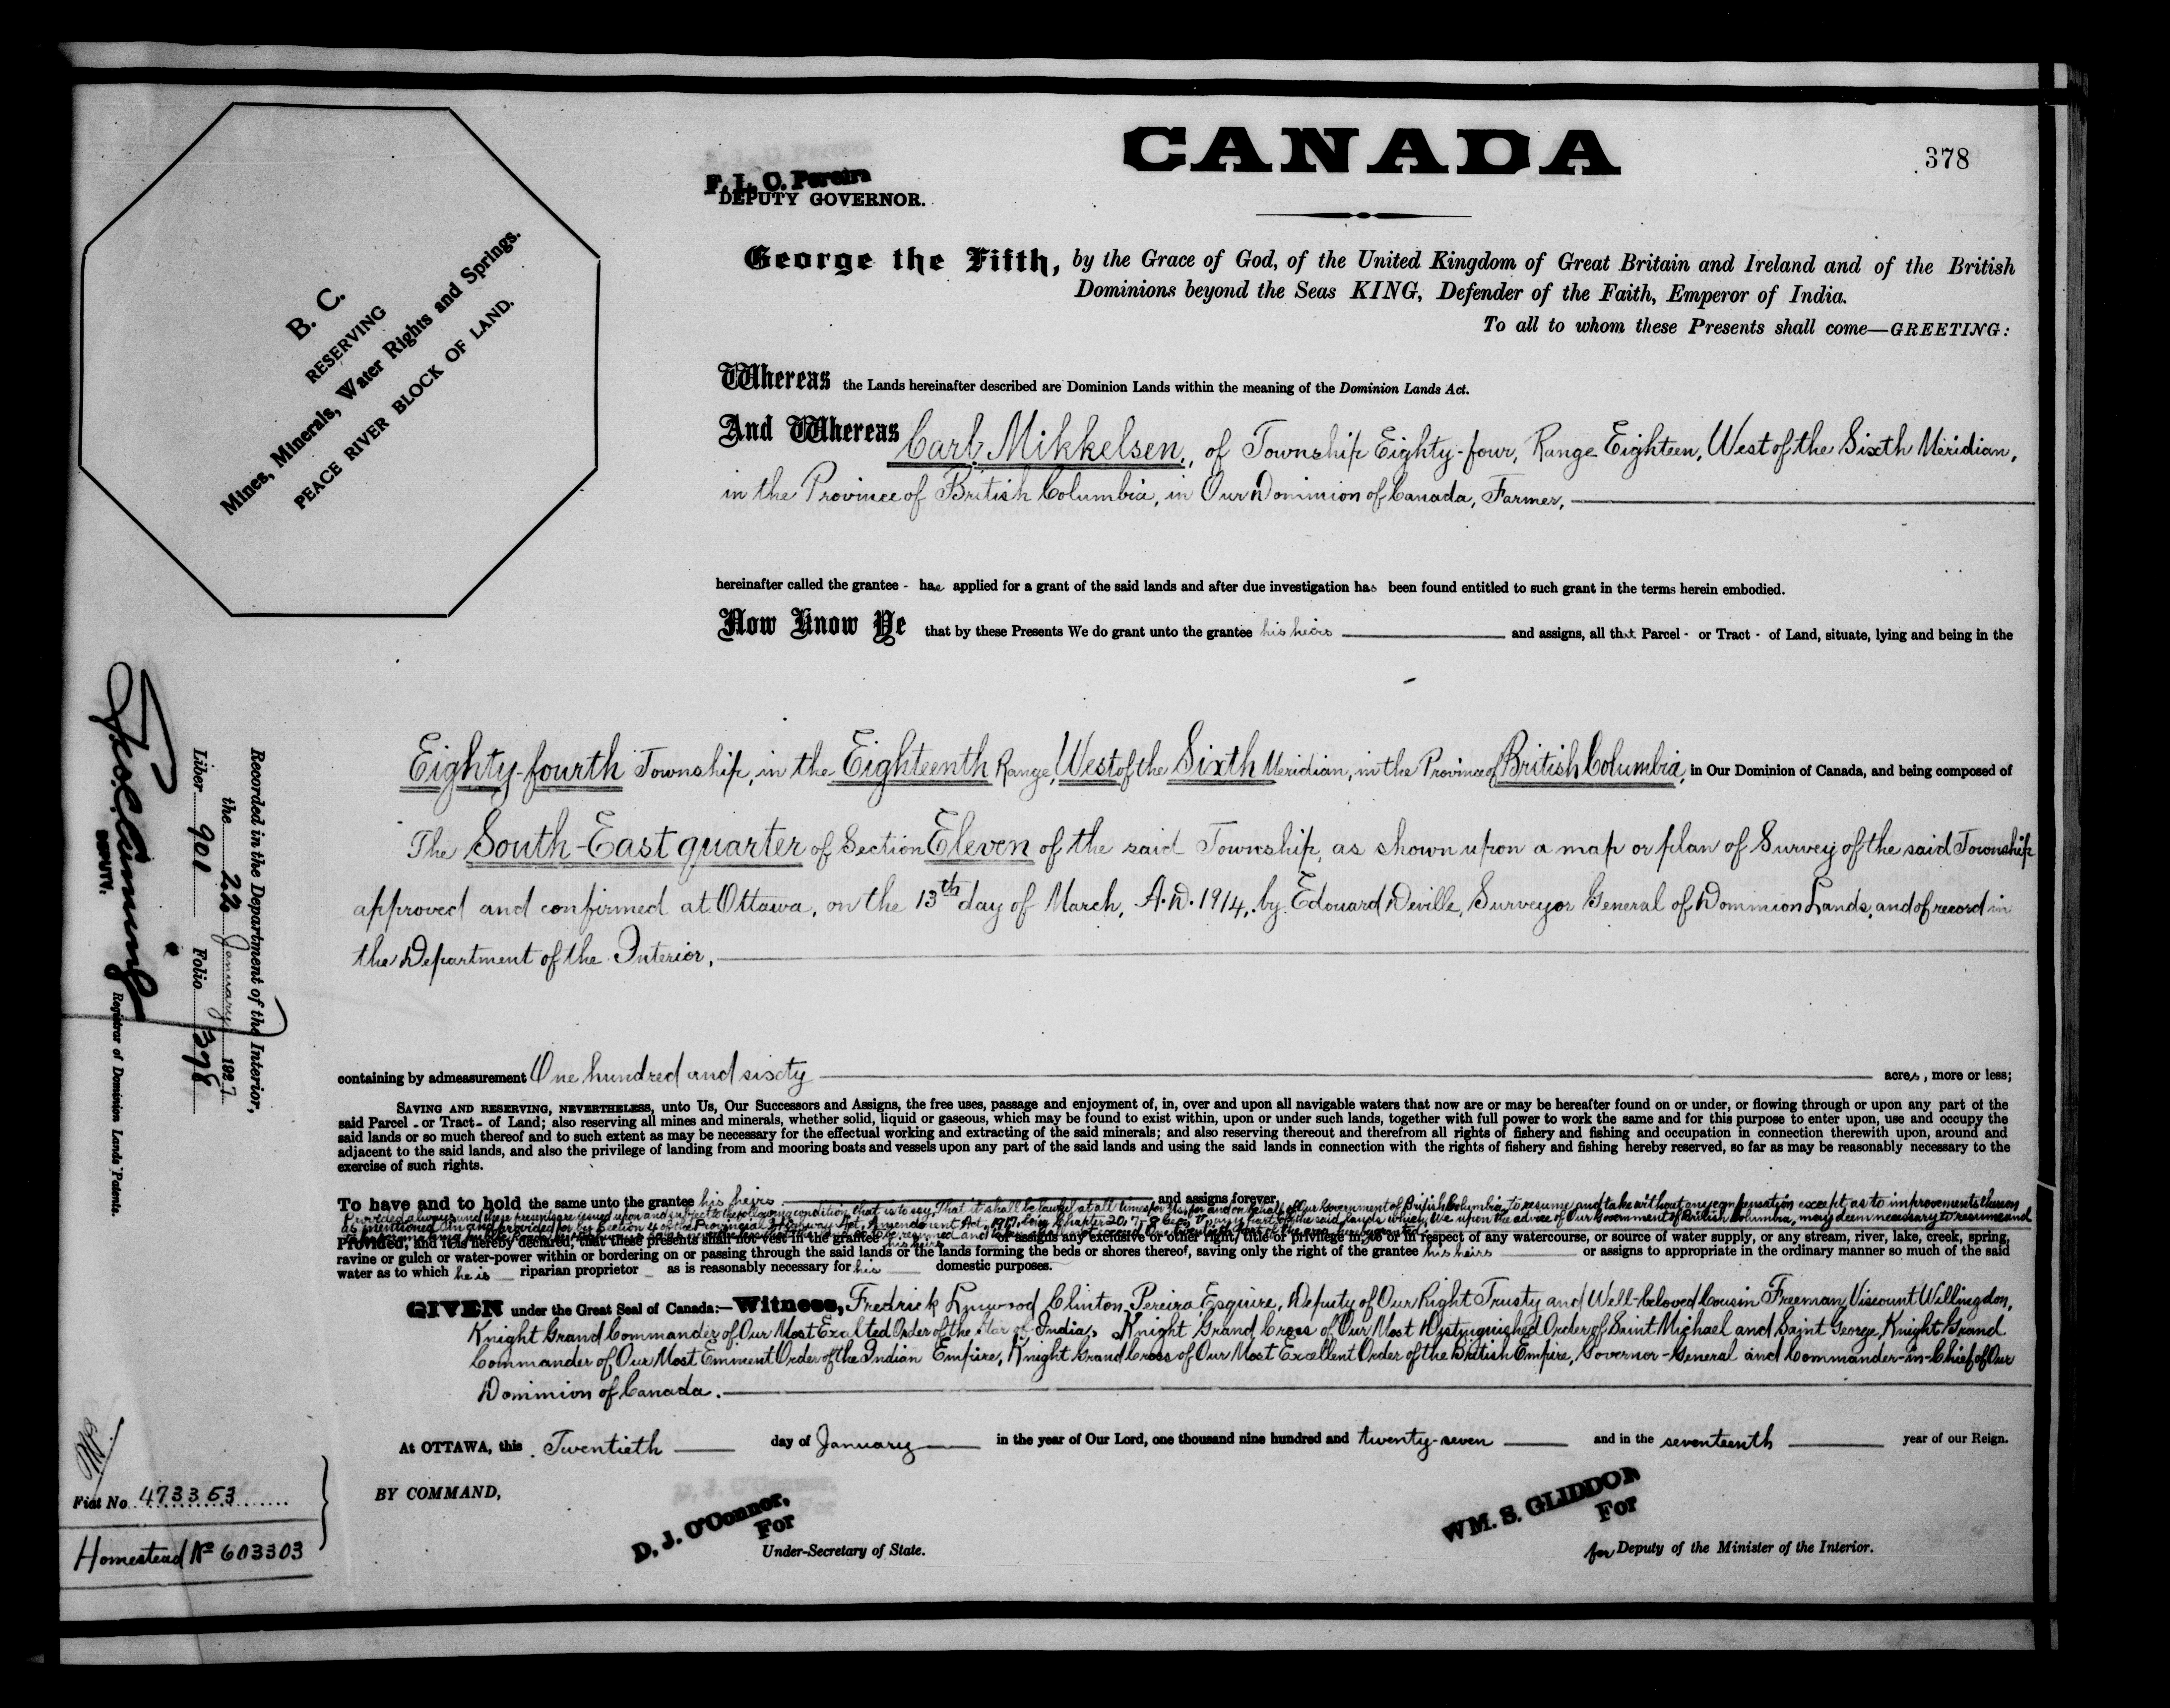 CANADA
378
F. L. C. Pereira
DEPUTY GOVERNOR.
B. C.
RESERVING
Mines, Minerals, Water Rights and Springs.
PEACE RIVER BLOCK OF LAND.
George the Fifth, by the Grace of God, of the United Kingdom of Great Britain and Ireland and of the British
Dominions beyond the Seas KING, Defender of the Faith, Emperor of India.
To all to whom these Presents shall come—GREETING:
Whereas the Lands hereinafter described are Dominion Lands within the meaning of the Dominion Lands Act.
And Whereas Carl Mikkelsen, of Township Eighty-four, Range Eighteen, West of the Sixth Meridian,
in the Province of British Columbia, in Our Dominion of Canada, Farmer,
hereinafter called the grantee - has applied for a grant of the said lands and after due investigation has been found entitled to such grant in the terms herein embodied.
Now Know Ye that by these Presents We do grant unto the grantee his heirs and assigns, all that Parcel - or Tract - of Land, situate, lying and being in the
Eighty-fourth Township, in the Eighteenth Range, West of the Sixth Meridian, in the Province of British Columbia, in Our Dominion of Canada, and being composed of
The South-East quarter of Section Eleven of the said Township, as shown upon a map or plan of Survey of the said Township
approved and confirmed at Ottawa, on the 13th day of March, A.D. 1914, by Edouard Deville, Surveyor General of Dominion Lands, and of record in
the Department of the Interior,
containing by admeasurement One hundred and sixty acres, more or less;
SAVING AND RESERVING, NEVERTHELESS, unto Us, Our Successors and Assigns, the free uses, passage and enjoyment of, in, over and upon all navigable waters that now are or may be hereafter found on or under, or flowing through or upon any part of the
said Parcel - or Tract - of Land; also reserving all mines and minerals, whether solid, liquid or gaseous, which may be found to exist within, upon or under such lands, together with full power to work the same and for this purpose to enter upon, use and occupy the
said lands or so much thereof and to such extent as may be necessary for the effectual working and extracting of the said minerals; and also reserving thereout and therefrom all rights of fishery and fishing and occupation in connection therewith upon, around and
adjacent to the said lands, and also the privilege of landing from and mooring boats and vessels upon any part of the said lands and using the said lands in connection with the rights of fishery and fishing hereby reserved, so far as may be reasonably necessary to the
exercise of such rights.
To have and to hold the same unto the grantee his heirs and assigns forever,
Provided always and these presents are issued upon and subject to the following condition that is to say, That it shall be lawful at all times for Us, for and on behalf of Our Government of British Columbia, to resume and take without any compensation except as to improvements thereon
as mentioned in and provided for by Section 4 of the Provincial Highway Act, Amendment Act, 1917, being Chapter 20, any part of the said lands which, We upon the advice of Our Government of British Columbia, may deem necessary to resume and
Provided, and it is hereby declared, that these presents shall not vest in the grantee his heirs or assigns any exclusive or other right, title or privilege in, to or in respect of any watercourse, or source of water supply, or any stream, river, lake, creek, spring,
ravine or gulch or water-power within or bordering on or passing through the said lands or the lands forming the beds or shores thereof, saving only the right of the grantee his heirs or assigns to appropriate in the ordinary manner so much of the said
water as to which he is riparian proprietor as is reasonably necessary for his domestic purposes.
GIVEN under the Great Seal of Canada:—Witness, Fredrick Lynwood Clinton Pereira Esquire, Deputy of Our Right Trusty and Well-beloved Cousin Freeman, Viscount Willingdon,
Knight Grand Commander of Our Most Exalted Order of the Star of India, Knight Grand Cross of Our Most Distinguished Order of Saint Michael and Saint George, Knight Grand
Commander of Our Most Eminent Order of the Indian Empire, Knight Grand Cross of Our Most Excellent Order of the British Empire, Governor-General and Commander-in-Chief of Our
Dominion of Canada.
At OTTAWA, this Twentieth day of January in the year of Our Lord, one thousand nine hundred and twenty-seven and in the seventeenth year of our Reign.
BY COMMAND,
D. J. O'Connor,
For
Under-Secretary of State.
WM. S. GLIDDON
For
for Deputy of the Minister of the Interior.
Recorded in the Department of the Interior,
the 22 January 1927
Liber 901 Folio 378
DEPUTY.
Registrar of Dominion Lands Patents.
Fiat No 473353
Homestead No 603303